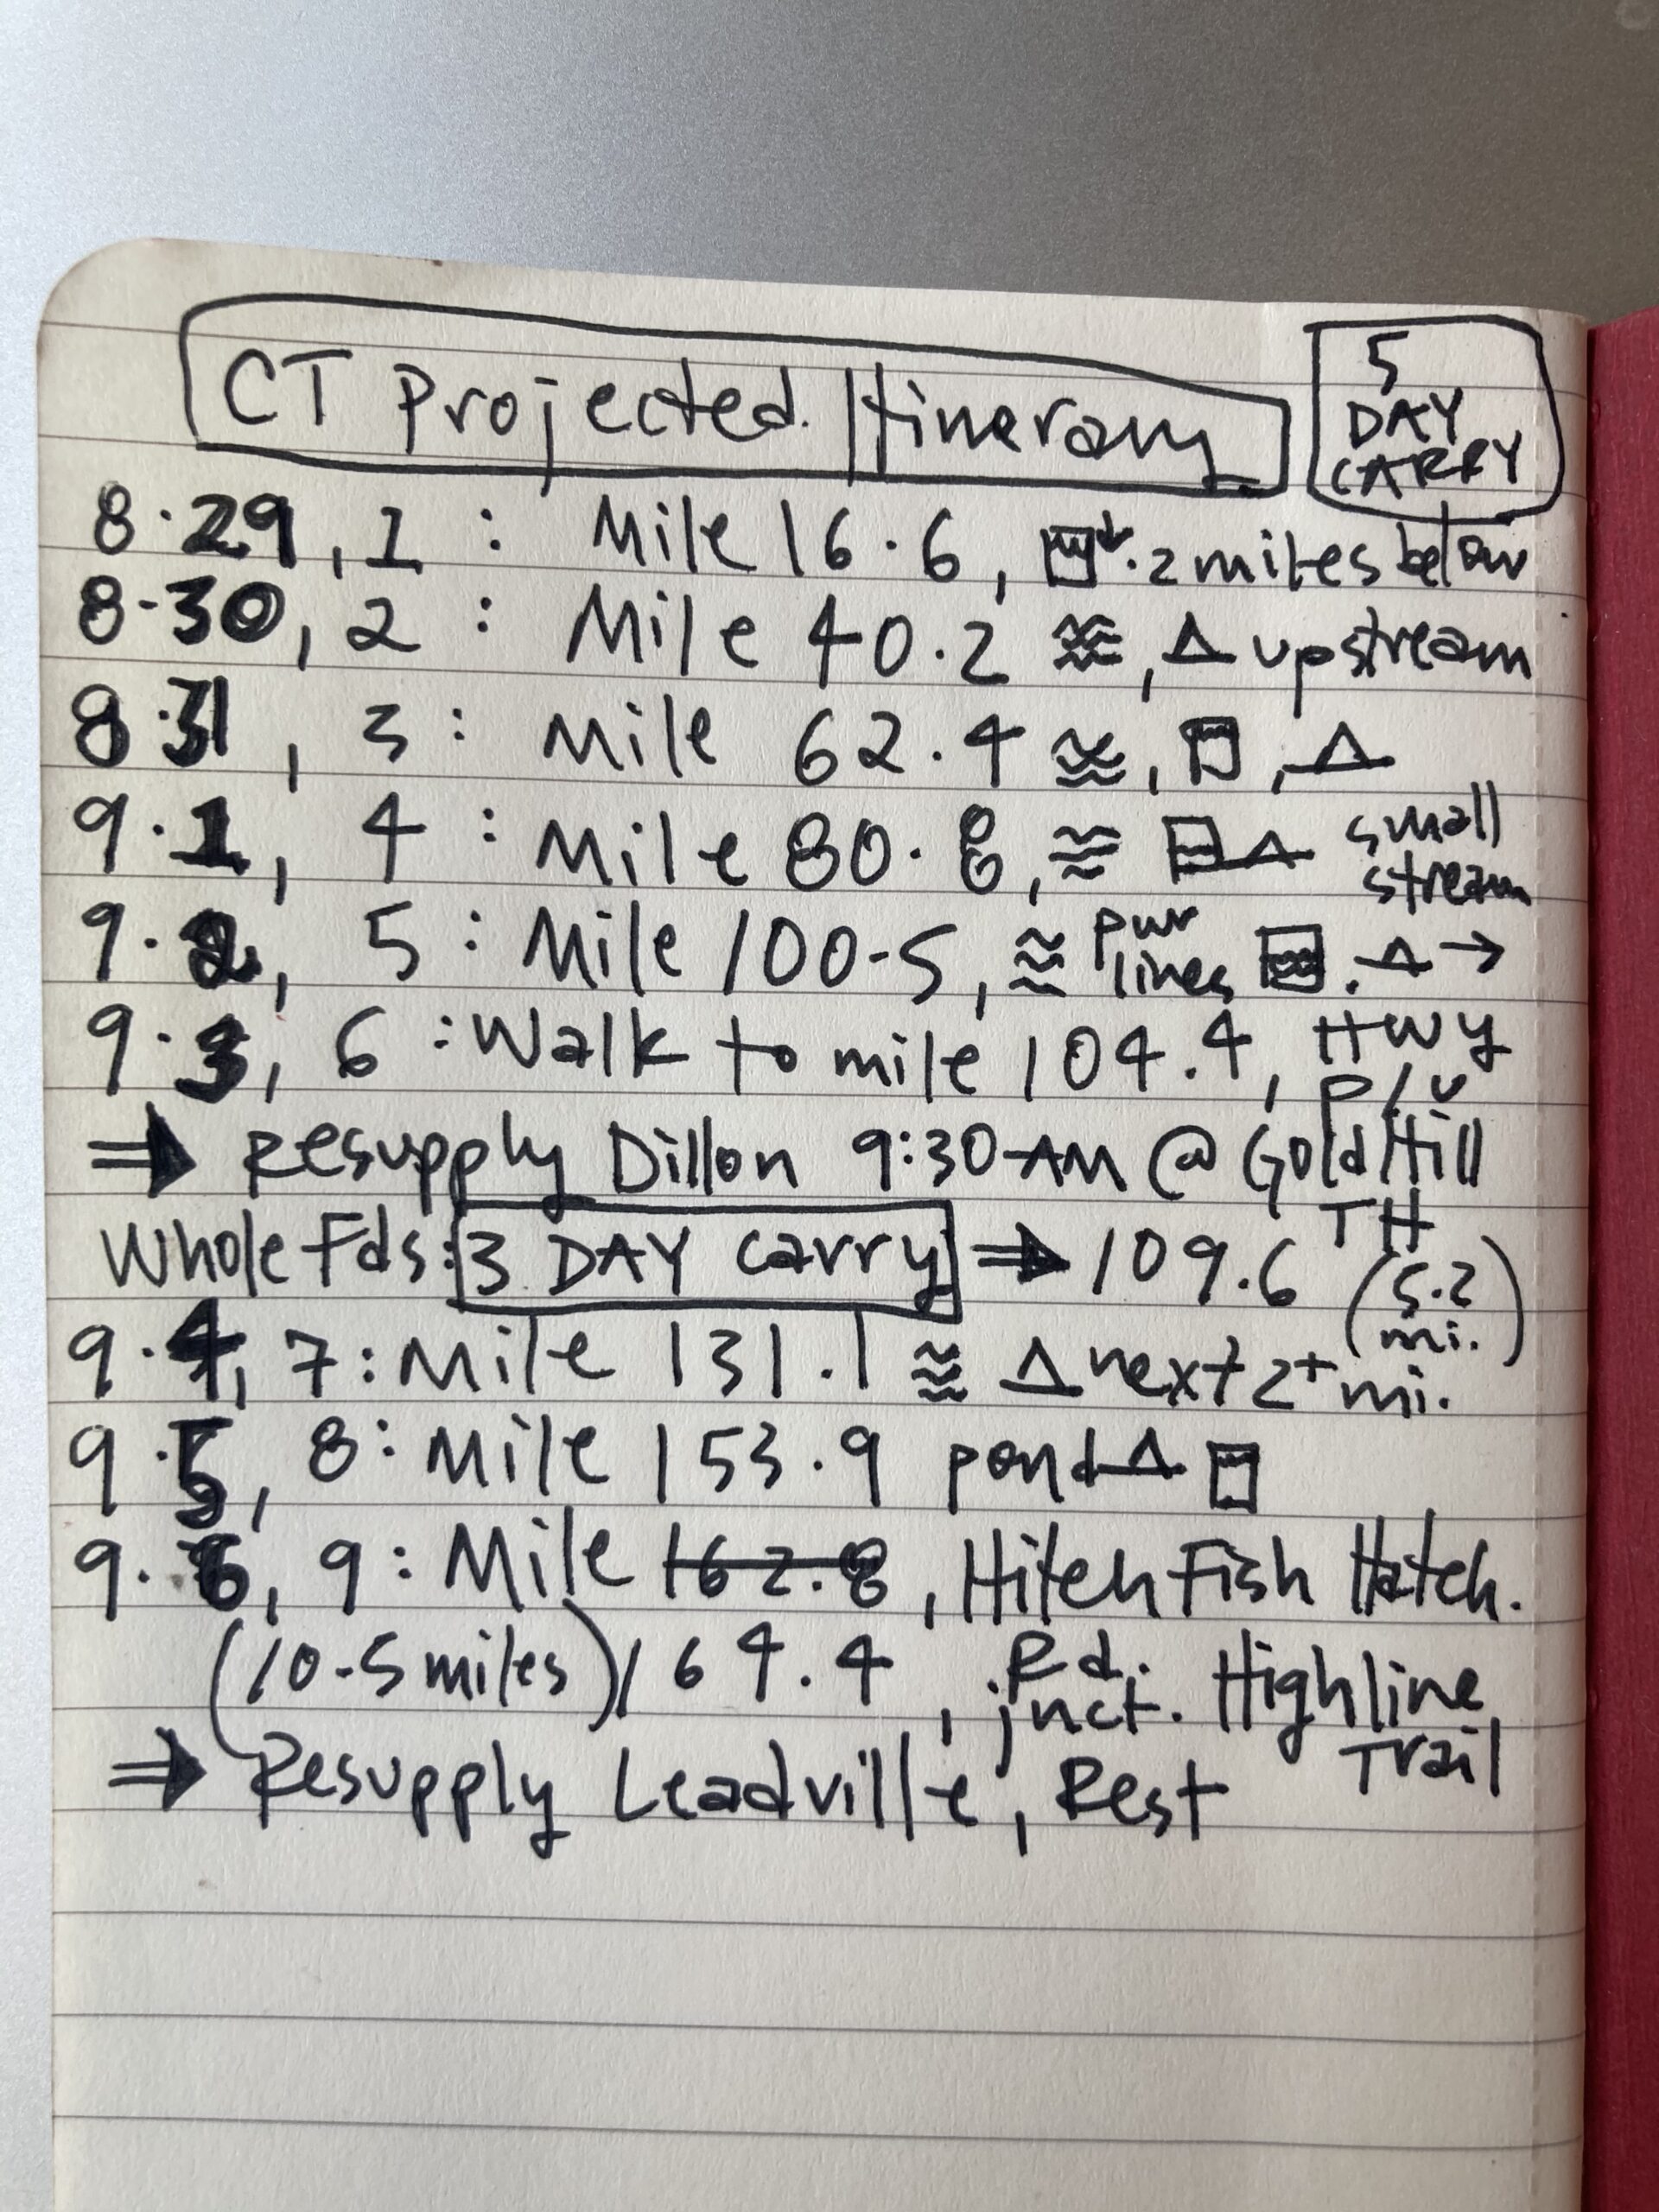 CT Projected Itinerary
5
DAY
CARRY
8.29, 1 : Mile 16.6, .2 miles below
8.30, 2 : Mile 40.2, △ upstream
8.31, 3 : Mile 62.4, △
9.1, 4 : Mile 80.8, △ small
stream
9.2, 5 : Mile 100.5, pwr
lines △ →
9.3, 6 : Walk to mile 104.4, Hwy
P/U
⇒ Resupply Dillon 9:30 AM @ Gold Hill
TH
Whole Fds: 3 DAY carry ⇒ 109.6 (5.2
mi.)
9.4, 7 : Mile 131.1 △ next 2+ mi.
9.5, 8 : Mile 153.9 pond △
9.6, 9 : Mile 162.8, Hitch Fish Hatch.
(10.5 miles) 164.4, Rd.
junct. Highline
Trail
⇒ Resupply Leadville, Rest